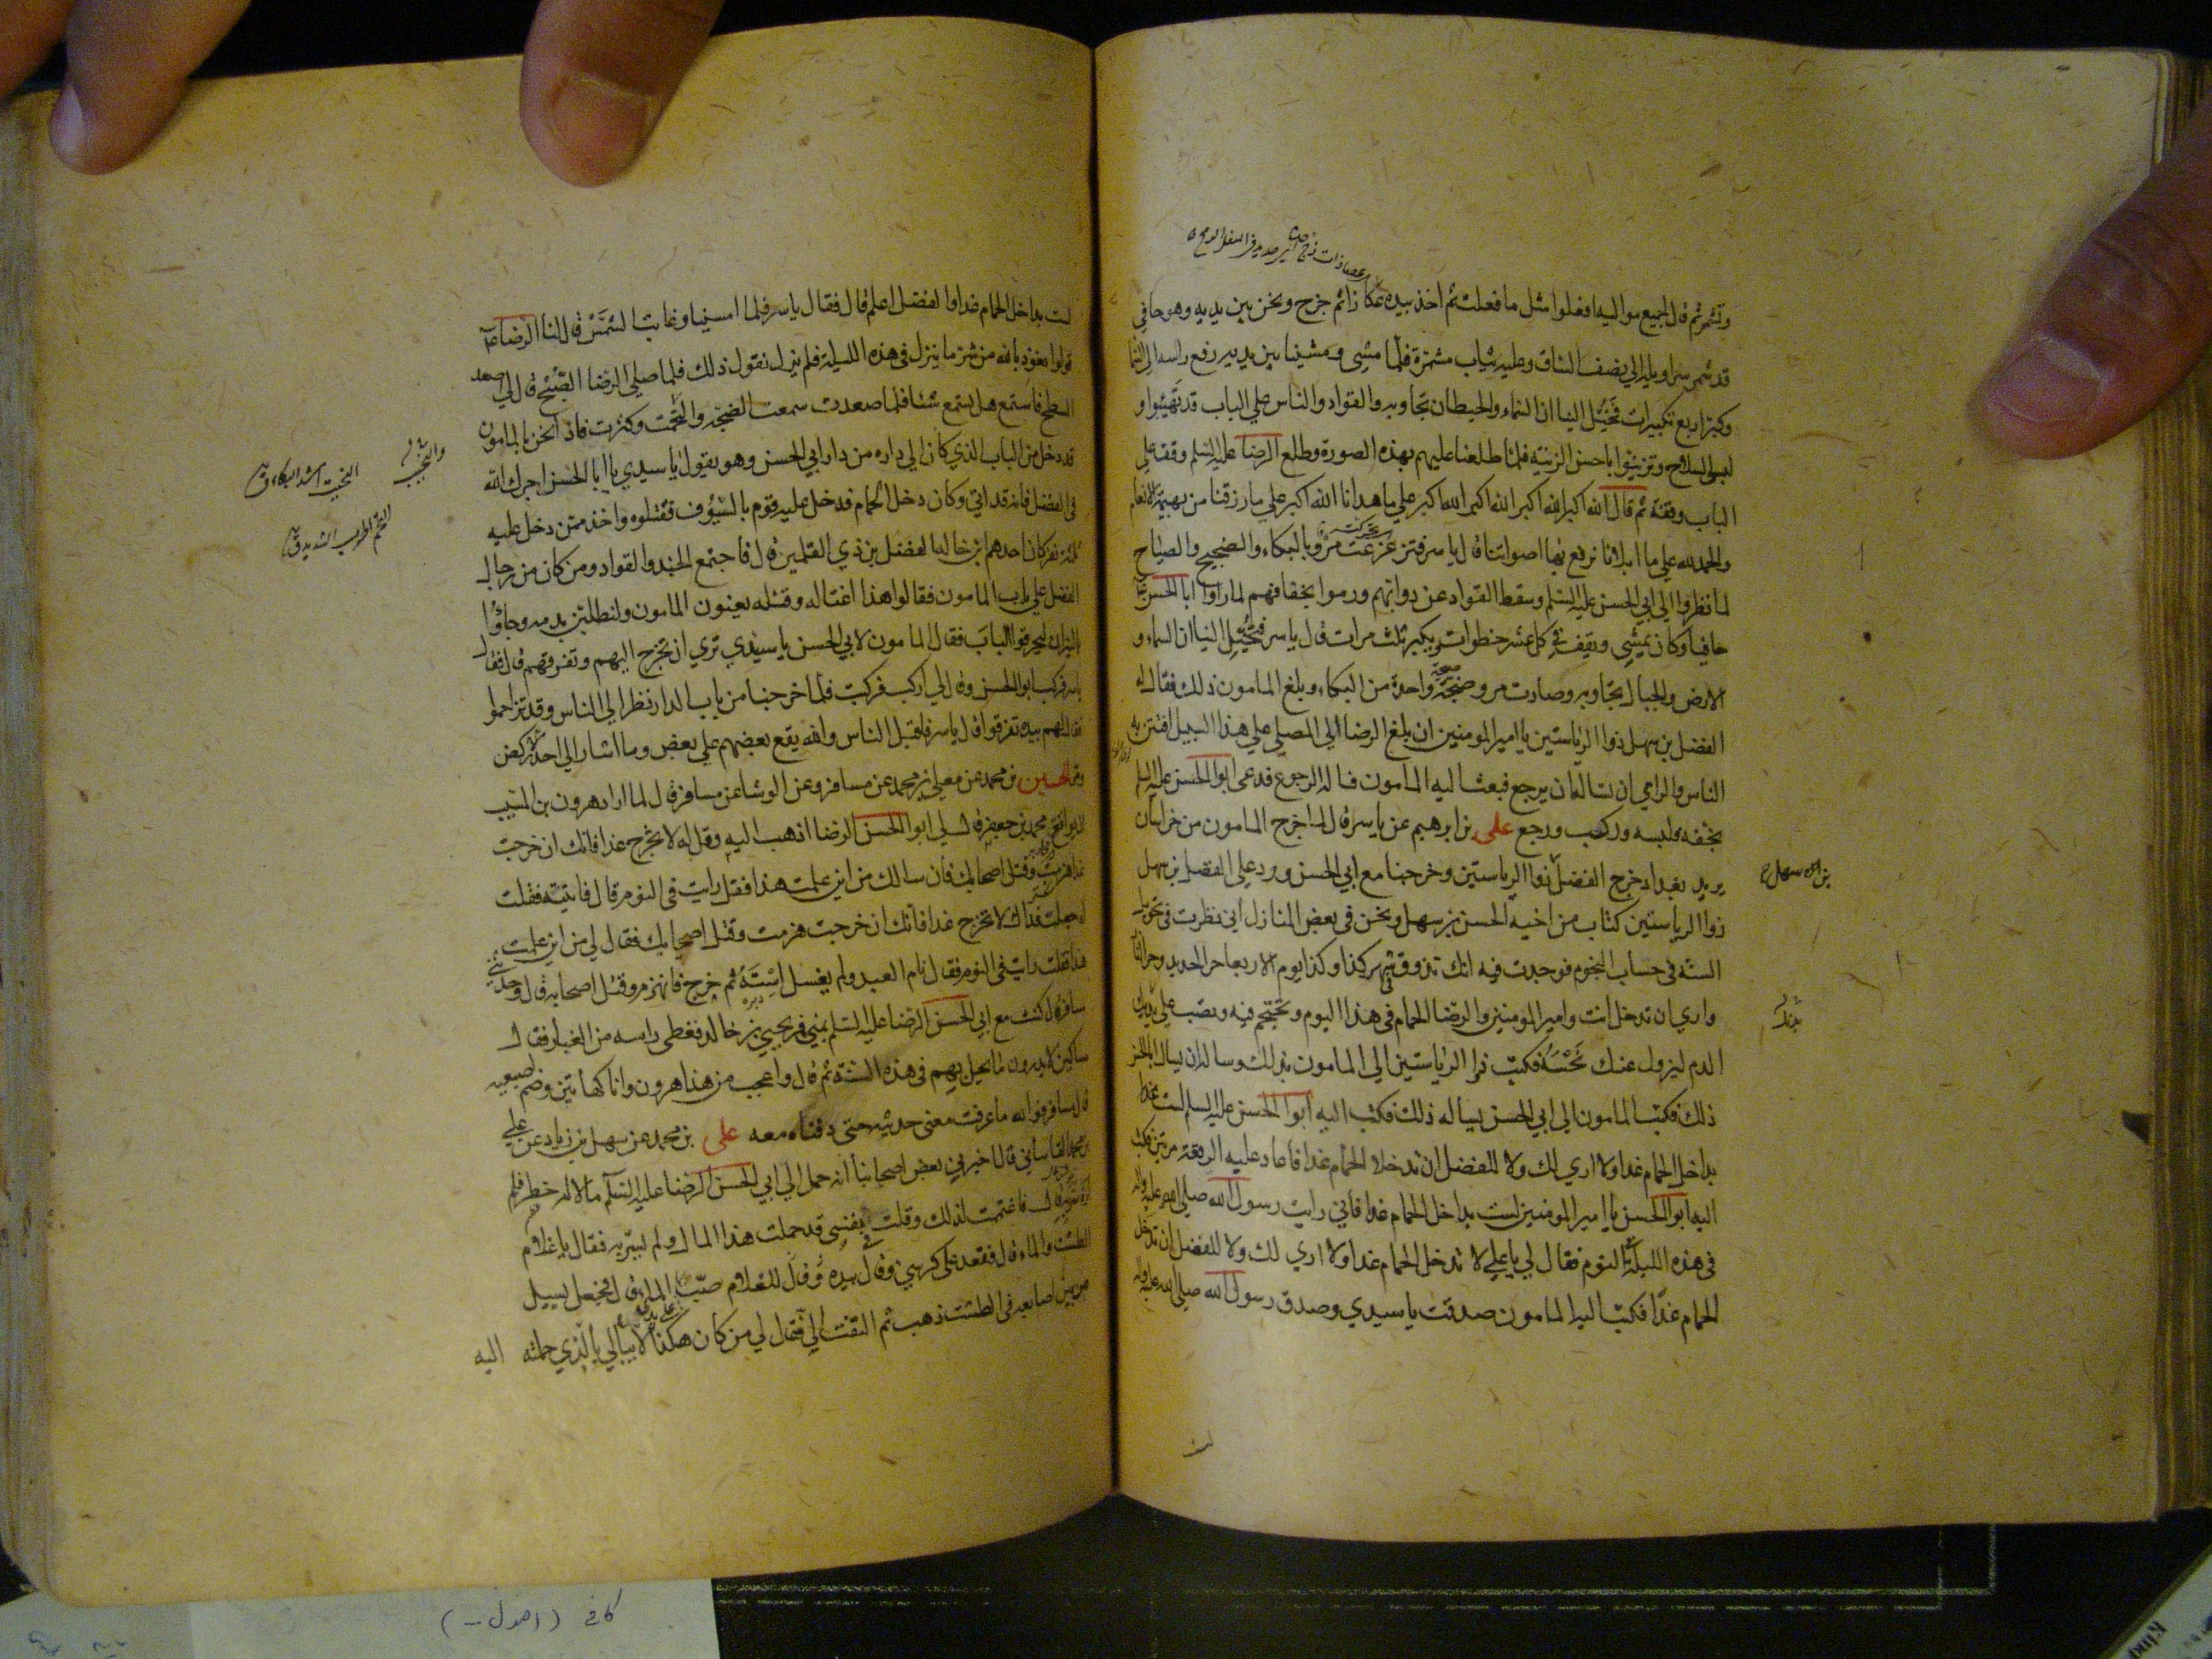 وتشمر ثم قال لجميع مواليه افعلوا مثل ما فعلت ثم اخذ بيده عكازا ثم خرج ونحن بين يديه وهو حافي
قد شمر سراويله الي نصف الساق وعليه ثياب مشمرة فلما مشي ومشينا بين يديه رفع راسه الي السماء
وكبر اربع تكبيرات فخيل الينا ان السماء والحيطان تجاوبه والقواد والناس علي الباب قد تهيئوا و
لبسوا السلاح وتزينوا باحسن الزينة فلما طلعنا عليهم بهذه الصورة وطلع الرضا عليه السلم وقف علي
الباب وقفة ثم قال الله اكبر الله اكبر الله اكبر الله اكبر علي ما هدانا الله اكبر علي ما رزقنا من بهيمة الانعام
والحمد لله علي ما ابلانا نرفع بها اصواتنا قال ياسر فتزعزعت مرو بالبكاء والضجيج والصياح
لما نظروا الي ابي الحسن عليه السلم وسقط القواد عن دوابهم ورموا بخفافهم لما راوا ابا الحسن
حافيا وكان يمشي ويقف في كل عشر خطوات ويكبر ثلث مرات قال ياسر فتخيل الينا ان السماء و
الارض والجبال تجاوبه وصارت مرو ضجة واحدة من البكاء وبلغ المامون ذلك فقال له
الفضل بن سهل ذوا الرياستين يا امير المومنين ان بلغ الرضا الي المصلي علي هذا السبيل افتتن به
الناس والراي ان تساله ان يرجع فبعث اليه المامون فساله الرجوع فدعي ابو الحسن عليه السلم
بخفه فلبسه وركب ورجع علي بن ابرهيم عن ياسر قال لما خرج المامون من خراسان
يريد بغداد خرج الفضل ذوا الرياستين وخرجنا مع ابي الحسن ورد علي الفضل بن سهل
ذوا الرياستين كتاب من اخيه الحسن بن سهل ونحن في بعض المنازل اني نظرت في تحويل
السنة في حساب النجوم فوجدت فيه انك تذوق في شهر كذا وكذا يوم الاربعا حر الحديد وحر النار
واري ان تدخل انت وامير المومنين والرضا الحمام في هذا اليوم وتحتجم فيه وتصب علي يديك
الدم ليزول عنك نحسه فكتب ذوا الرياستين الي المامون بذلك وساله ان يسال ابا الحسن
ذلك فكتب المامون الي ابي الحسن يساله ذلك فكتب اليه ابوا الحسن عليه السلم لست
بداخل الحمام غدا ولا اري لك ولا للفضل ان تدخلا الحمام غدا فاعاد عليه الرقعة مرتين فكتب
اليه ابوا الحسن يا امير المومنين لست بداخل الحمام غدا فاني رايت رسول الله صلي الله عليه واله
في هذه الليلة في النوم فقال لي يا علي لا تدخل الحمام غدا ولا اري لك ولا للفضل ان تدخل
الحمام غدا فكتب اليه المامون صدقت يا سيدي وصدق رسول الله صلي الله عليه واله
بن سهل
بدنك
لست بداخل الحمام غدا والفضل اعلم قال فقال ياسر فلما امسينا وغابت الشمس قال لنا الرضا
قولوا نعوذ بالله من شر ما ينزل في هذه الليلة فلم نزل نقول ذلك فلما صلي الرضا الصبح قال لي صعد
السطح فاستمع هل تسمع شئا فلما صعدت سمعت الضجة والتحمت وكثرت فاذا نحن بالمامون
قد دخل من الباب الذي كان الي داره من دار ابي الحسن وهو يقول يا سيدي يا ابا الحسن اجرك الله
في الفضل فانه قد ابي وكان دخل الحمام فدخل عليه قوم بالسيوف فقتلوه واخذ ممن دخل عليه
ثلثة نفر كان احدهم ابن خاله الفضل بن ذي القلمين قال فاجتمع الجند والقواد ومن كان من رجال
الفضل علي باب المامون فقالوا هذا اغتاله وقتله يعنون المامون ولنطلبن بدمه وجاؤا
بالنيران ليحرقوا الباب فقال المامون لابي الحسن يا سيدي تري ان تخرج اليهم وتفرقهم قال فقال
ياسر فركب ابو الحسن وقال لي اركب فركبت فلما خرجنا من باب الدار نظر الي الناس وقد تزاحموا
فقال لهم بيده تفرقوا قال ياسر فاقبل الناس والله يقع بعضهم علي بعض وما اشار الي احد الا ركض
الحسين بن محمد عن معلي بن محمد عن مسافر وعن الوشا عن مسافر قال لما اراد هرون بن المسيب
ان يواقع محمد بن جعفر قال لي ابوا الحسن الرضا اذهب اليه وقل له لا تخرج غدا فانك ان خرجت
غدا هزمت وقتل اصحابك فان سالك من اين علمت هذا فقل رايت في النوم قال فاتيته فقلت
له جعلت فداك لا تخرج غدا فانك ان خرجت هزمت وقتل اصحابك فقال لي من اين علمت
هذا فقلت رايت في النوم فقال نام العبد ولم يغسل استه ثم خرج فانهزم وقتل اصحابه قال وحدثني
مسافر قال كنت مع ابي الحسن الرضا عليه السلم بمني فمر يحيي بن خالد فغطي راسه من الغبار فقال
مساكين لا يدرون ما يحل بهم في هذه السنة ثم قال واعجب من هذا هرون وانا كهاتين وضم اصبعيه
قال مسافر فوالله ما عرفت معني حديثه حتي دفناه معه علي بن محمد عن سهل بن زياد عن علي
بن محمد القاساني قال اخبرني بعض اصحابنا انه حمل الي ابي الحسن الرضا عليه السلم مالا له خطر فلم
اره سر به قال فاغتممت لذلك وقلت في نفسي قد حملت هذا المال ولم يسر به فقال يا غلام
الطشت والماء قال فقعد علي كرسي وقال بيده وقال للغلام صب الماء قال فجعل يسيل
من بين اصابعه في الطشت ذهب ثم التفت الي فقال لي من كان هكذا لا يبالي بالذي حملته اليه
والنحيب
النحيب اشد البكاء ق
كافى (اصول -)